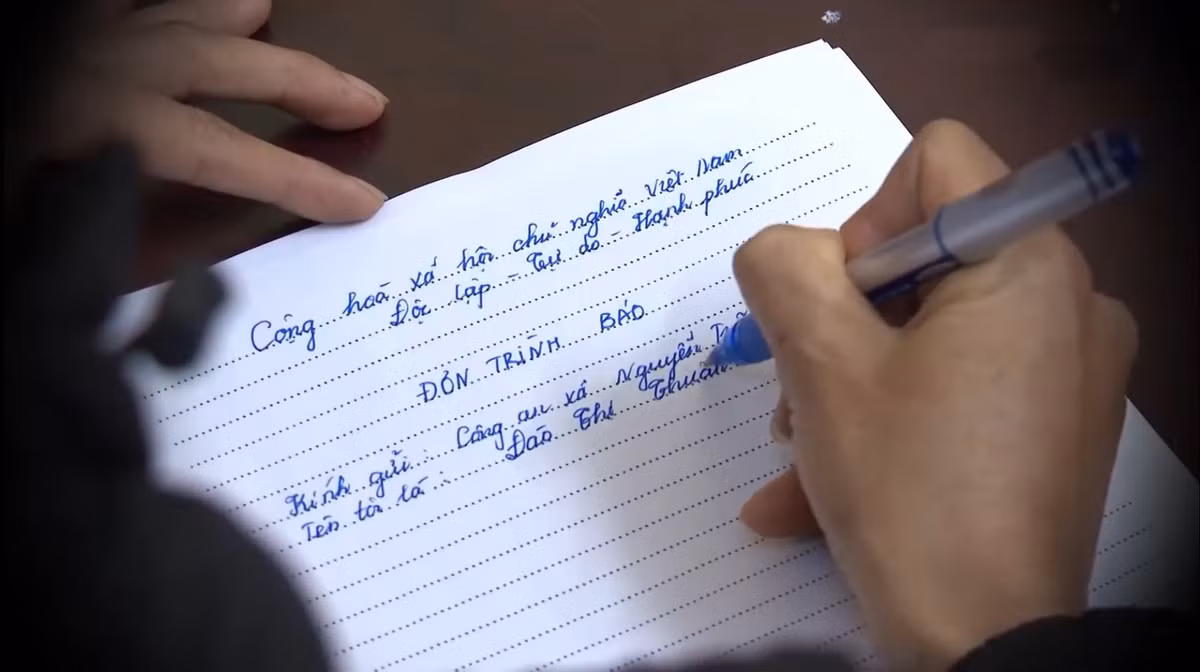 Cộng hoà xã hội chủ nghĩa Việt Nam
Độc lập - Tự do - Hạnh phúc
ĐƠN TRÌNH BÁO
Kính gửi: Công an xã Nguyễn
Tên tôi là: Đào Thị Thuận